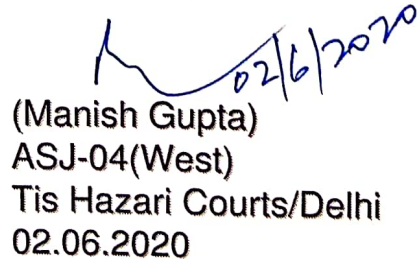 02/6/2020
(Manish Gupta)
ASJ-04(West)
Tis Hazari Courts/Delhi
02.06.2020